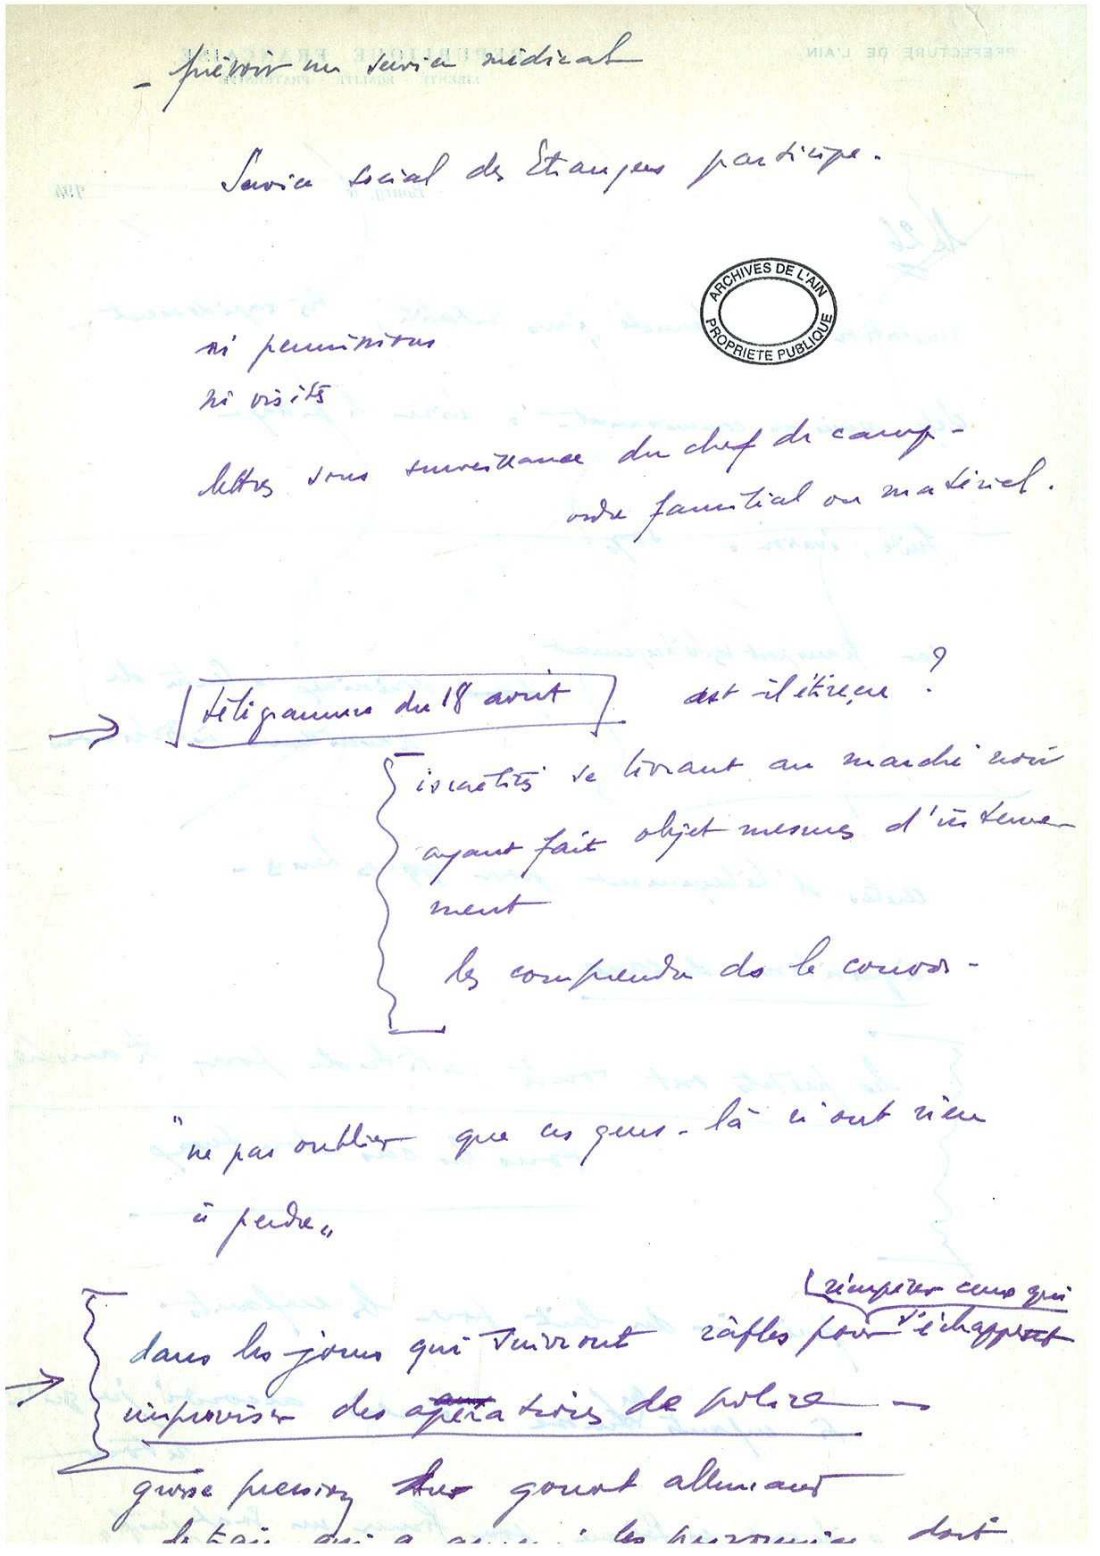 - prévoir un service médical
Service social des Etrangers participe.
ARCHIVES DE L'AIN
PROPRIETE PUBLIQUE
ni permissions
ni visites
lettres sous surveillance du chef de camp -
ordre familial ou matériel.
télégramme du 18 août est-il été reçu ?
israélites se livrant au marché noir
ayant fait objet mesures d'interne-
ment
les comprendre ds le convoi -
"ne pas oublier que ces gens-là n'ont rien
à perdre"
récupérer ceux qui
dans les jours qui suivront râfles pour s'échappent
improviser des opérations de police -
grosse pression gouvt allemand
le train qui a : les dont